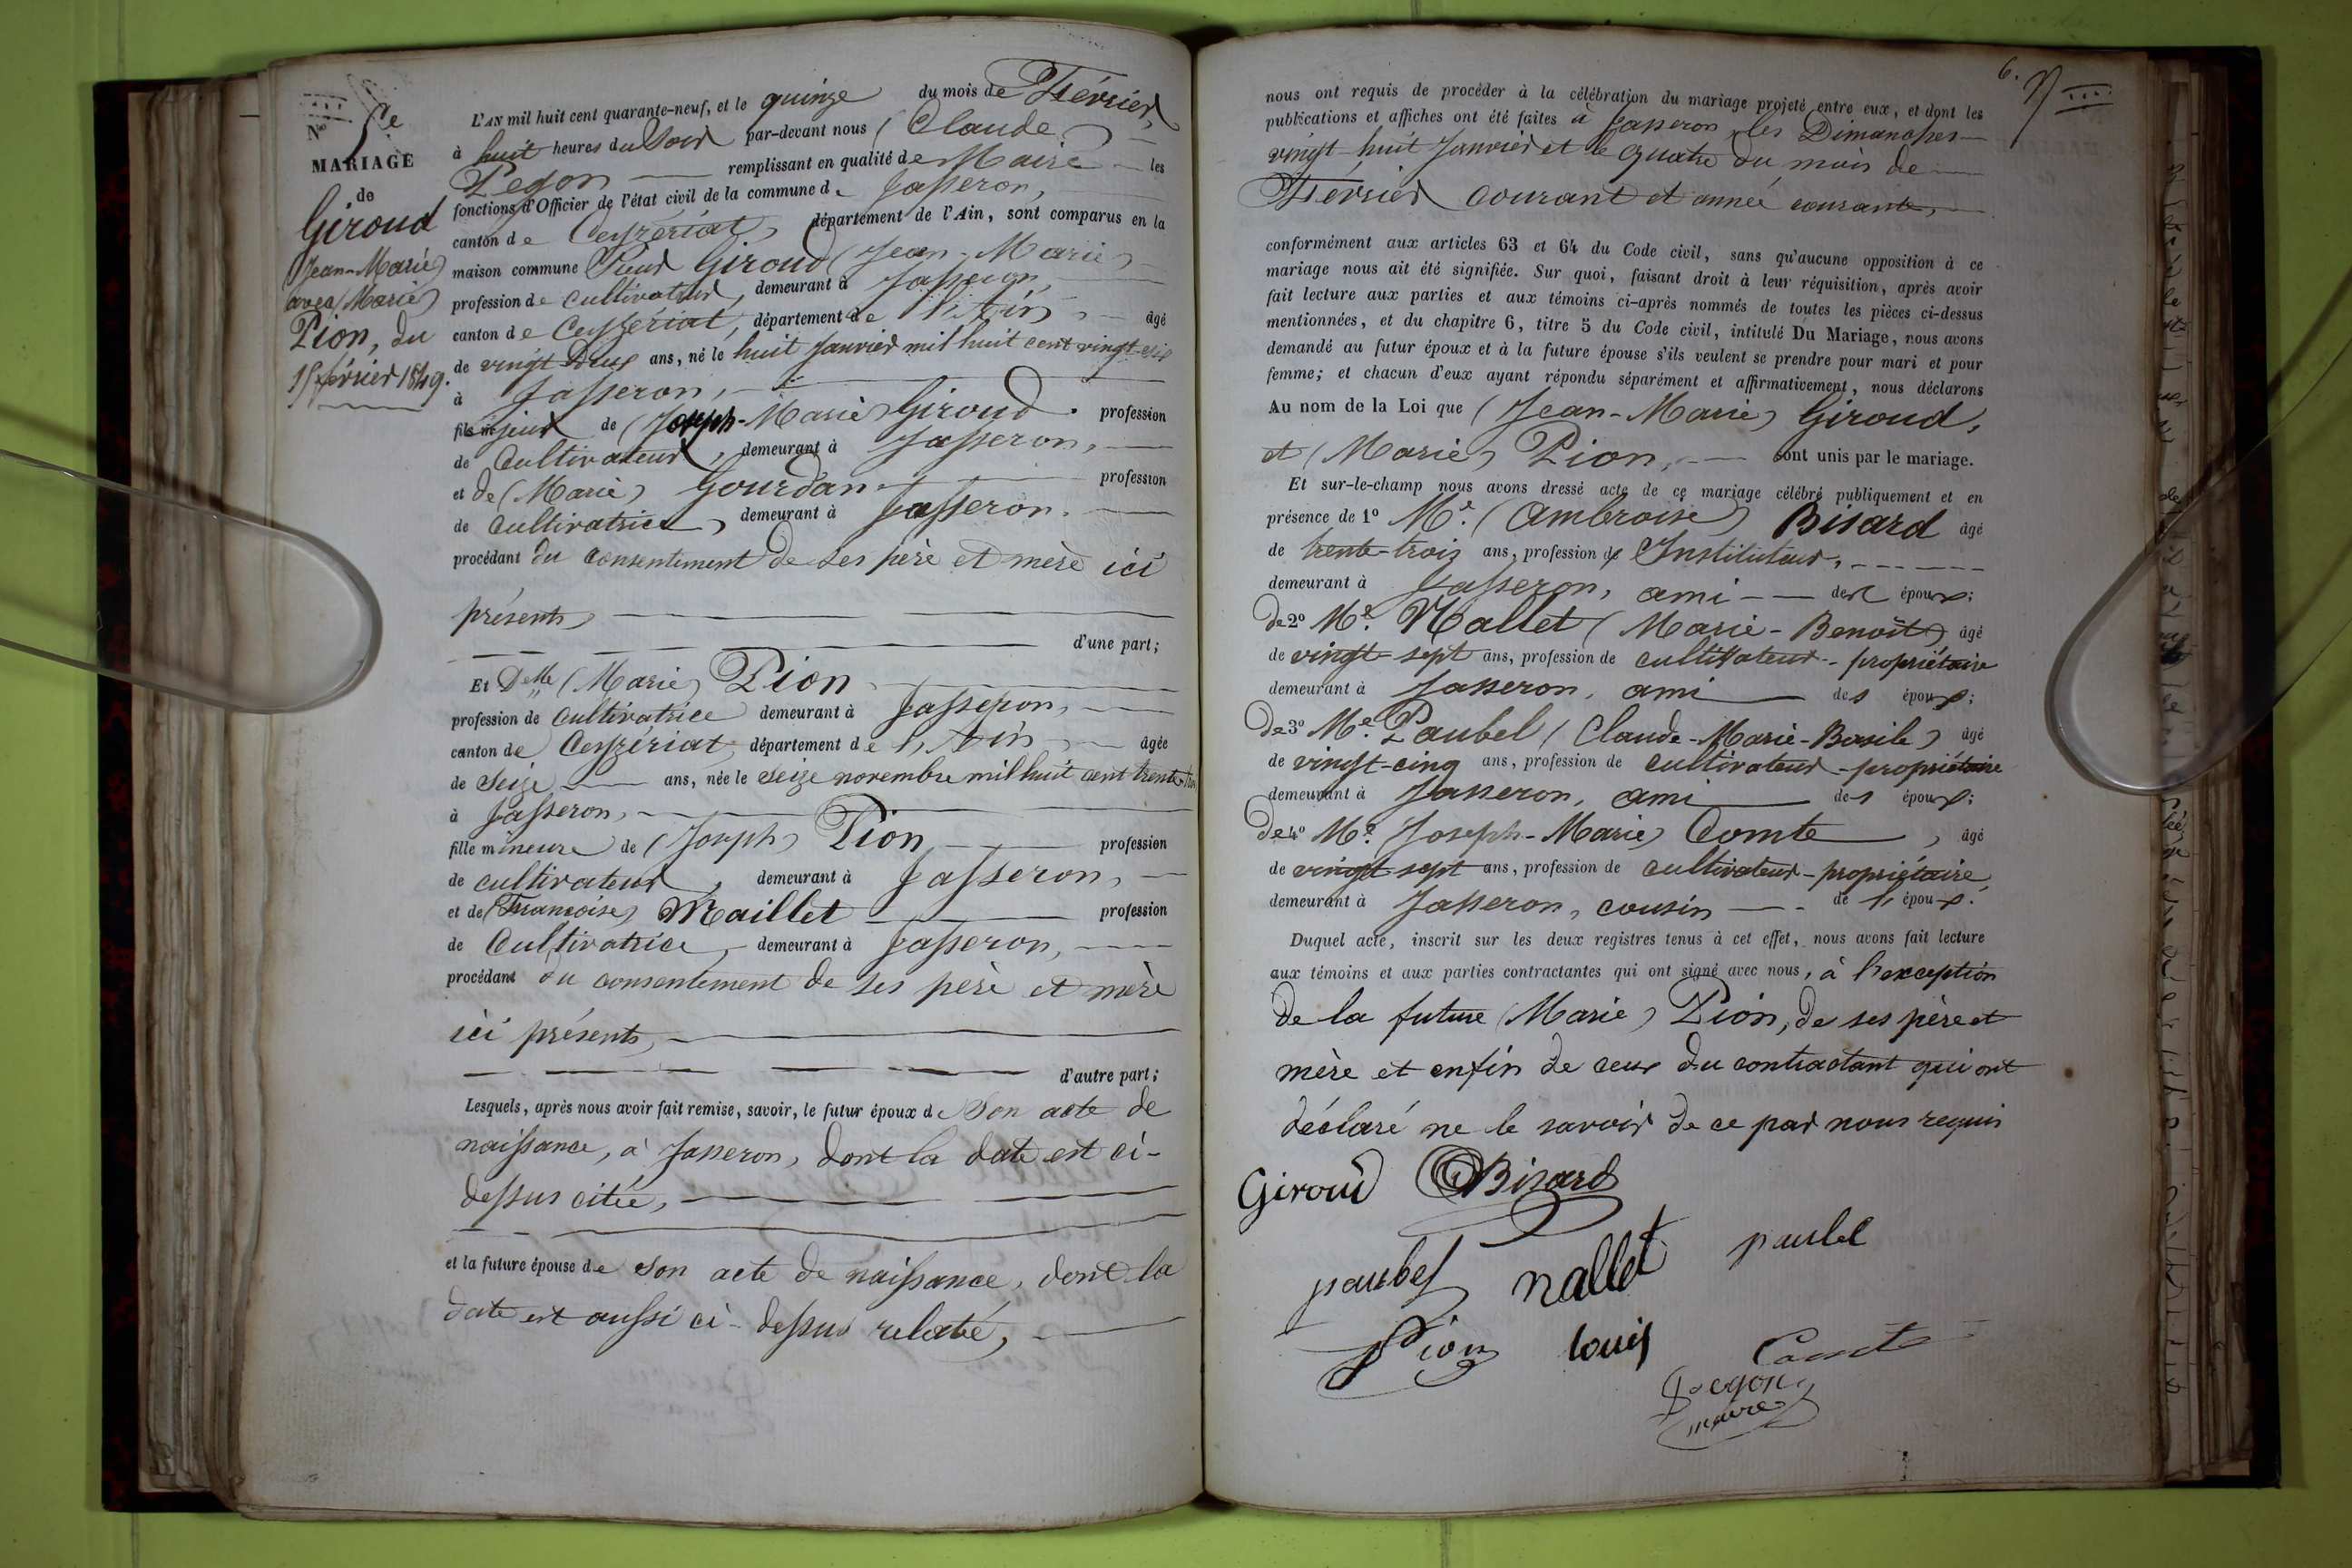 N° 5e
MARIAGE
de
Giroud
(Jean-Marie)
avec (Marie)
Pion, du
15 février 1849.
L'AN mil huit cent quarante-neuf, et le quinze du mois de Février,
à huit heures du Soir par-devant nous (Claude)
Pegon remplissant en qualité de Maire les
fonctions d'Officier de l'état civil de la commune de Jasseron,
canton de Ceyzériat, département de l'Ain, sont comparus en la
maison commune Sieur Giroud (Jean-Marie)
profession de cultivateur, demeurant à Jasseron,
canton de Ceyzériat, département de l'Ain, âgé
de vingt Deux ans, né le huit Janvier mil huit cent vingt-six
à Jasseron,
fils majeur de (Joseph-Marie) Giroud. profession
de Cultivateur, demeurant à Jasseron,
et de (Marie) Gourdan profession
de cultivatrice, demeurant à Jasseron.
procédant du consentement de ses père et mère ici
présents,
d'une part;
Et Delle (Marie) Pion
profession de Cultivatrice demeurant à Jasseron,
canton de Ceyzériat, département de l'Ain, âgée
de Seize ans, née le Seize novembre mil huit cent trente
à Jasseron,
fille mineure de (Joseph) Pion profession
de cultivateur, demeurant à Jasseron,
et de (Françoise) Maillet profession
de Cultivatrice, demeurant à Jasseron,
procédant du consentement de ses père et mère
ici présents,
d'autre part;
Lesquels, après nous avoir fait remise, savoir, le futur époux de Son acte de
naissance, à Jasseron, dont la date est ci-
dessus citée,
et la future épouse de son acte de naissance, dont la
date est aussi ci-dessus relatée,
6.
nous ont requis de procéder à la célébration du mariage projeté entre eux, et dont les
publications et affiches ont été faites à Jasseron, les Dimanches
vingt-huit Janvier et le quatre du mois de
Février courant et année courante,
conformément aux articles 63 et 64 du Code civil, sans qu'aucune opposition à ce
mariage nous ait été signifiée. Sur quoi, faisant droit à leur réquisition, après avoir
fait lecture aux parties et aux témoins ci-après nommés de toutes les pièces ci-dessus
mentionnées, et du chapitre 6, titre 5 du Code civil, intitulé Du Mariage, nous avons
demandé au futur époux et à la future épouse s'ils veulent se prendre pour mari et pour
femme; et chacun d'eux ayant répondu séparément et affirmativement, nous déclarons
Au nom de la Loi que (Jean-Marie) Giroud,
et (Marie) Pion, sont unis par le mariage.
Et sur-le-champ nous avons dressé acte de ce mariage célébré publiquement et en
présence de 1° Me. (Ambroise) Bisard âgé
de trente-trois ans, profession de Instituteur,
demeurant à Jasseron, ami des époux;
De 2° Me. Nallet (Marie-Benoît) âgé
de vingt-sept ans, profession de cultivateur-propriétaire
demeurant à Jasseron, ami des époux;
De 3° Me. Paubel (Claude-Marie-Basile) âgé
de vingt-cinq ans, profession de cultivateur-propriétaire
demeurant à Jasseron, ami des époux;
De 4° Me. (Joseph-Marie) Comte, âgé
de vingt-sept ans, profession de cultivateur-propriétaire,
demeurant à Jasseron, cousin de l'époux.
Duquel acte, inscrit sur les deux registres tenus à cet effet, nous avons fait lecture
aux témoins et aux parties contractantes qui ont signé avec nous, à l'exception
de la future (Marie) Pion, de ses père et
mère et enfin de ceux du contractant qui ont
déclaré ne le savoir de ce par nous requis
Giroud Bisard
paubel nallet paubel
Pion louis Comte
Pegon
maire